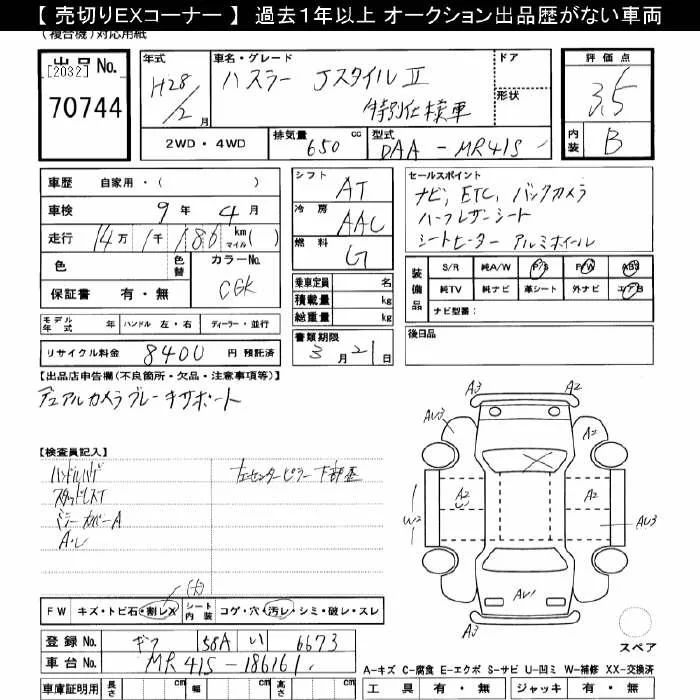 【 売切りEXコーナー 】 過去1年以上 オークション出品歴がない車両
(複合機)対応用紙
出品No.
[2032]
70744
年式
H28/2月
車名・グレード
ハスラー JスタイルⅡ
特別仕様車
ドア
形状
2WD・4WD
排気量 650 cc
型式 DAA-MR41S
評価点
3.5
内装 B
車歴 自家用・( )
車検 9年 4月
走行 14万 1千 186 km マイル( )
色
色替
カラーNo. CGK
保証書 有・無
シフト AT
冷房 AAC
燃料 G
乗車定員 名
積載量 kg
総重量 kg
セールスポイント
ナビ, ETC, バックカメラ
ハーフレザーシート
シートヒーター アルミホイール
装備品
S/R 純A/W P/S P/W ABS
純TV 純ナビ 革シート 外ナビ エアB
ナビ型番:
モデル年式 年 ハンドル 左・右 ディーラー・並行
リサイクル料金 8400 円 預託済
書類期限
3月21日
後日品
【出品店申告欄(不良箇所・欠品・注意事項等)】
デュアルカメラブレーキサポート
【検査員記入】
ハンドルハゲ
左センターピラー下部歪
ミラーカバーA
A・U
A3 A2
AU3 A2
A2 A2
W2 AU3
AU1
A3
スペア
FW キズ・トビ石・割レX シート内装 コゲ・穴・汚レ・シミ・破レ・スレ
登録No. ギフ 58A い 6673
車台No. MR41S-186161
車庫証明用 長さ cm 幅 cm 高さ cm
A-キズ C-腐食 E-エクボ S-サビ U-凹ミ W-補修 XX-交換済
工具 有・無 ジャッキ 有・無